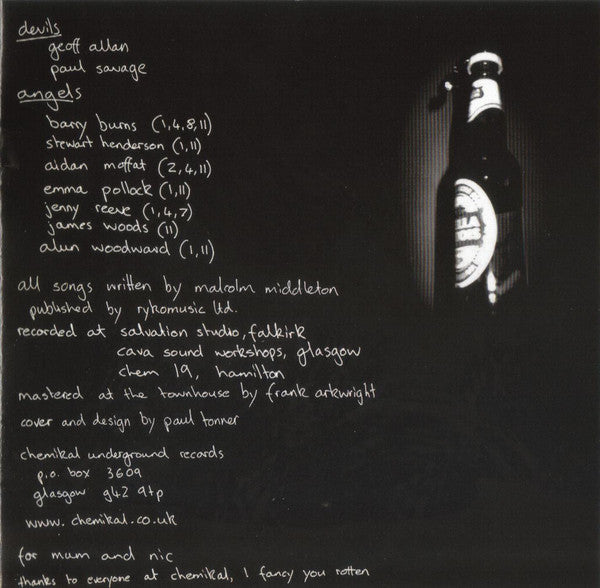 devils
geoff allan
paul savage
angels
barry burns (1,4,8,11)
stewart henderson (1,11)
aidan moffat (2,4,11)
emma pollock (1,11)
jenny reeve (1,4,7)
james woods (11)
alun woodward (1,11)
all songs written by malcolm middleton
published by rykomusic ltd.
recorded at salvation studio, falkirk
cava sound workshops, glasgow
chem 19, hamilton
mastered at the townhouse by frank arkwright
cover and design by paul tonner
chemikal underground records
p.o. box 3609
glasgow g42 9tp
www.chemikal.co.uk
for mum and nic
thanks to everyone at chemikal, I fancy you rotten